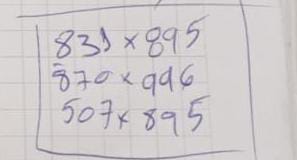 831 × 895
870 × 996
507 × 895